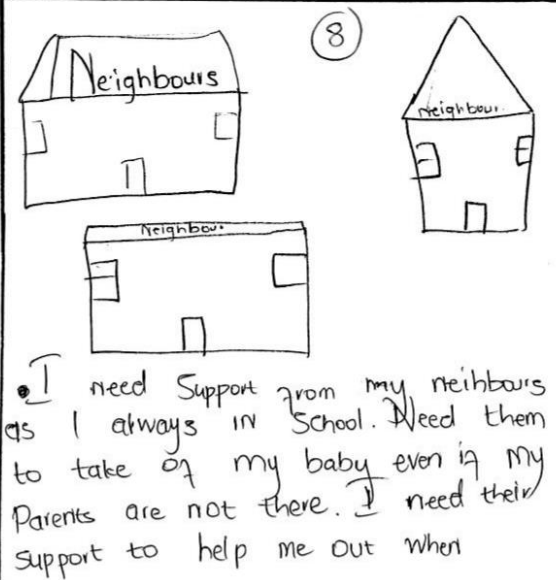 8
Neighbours
Neighbour
Neighbour
• I need Support from my neihbours
as I always in School. Need them
to take of my baby even if my
Parents are not there. I need their
support to help me out when